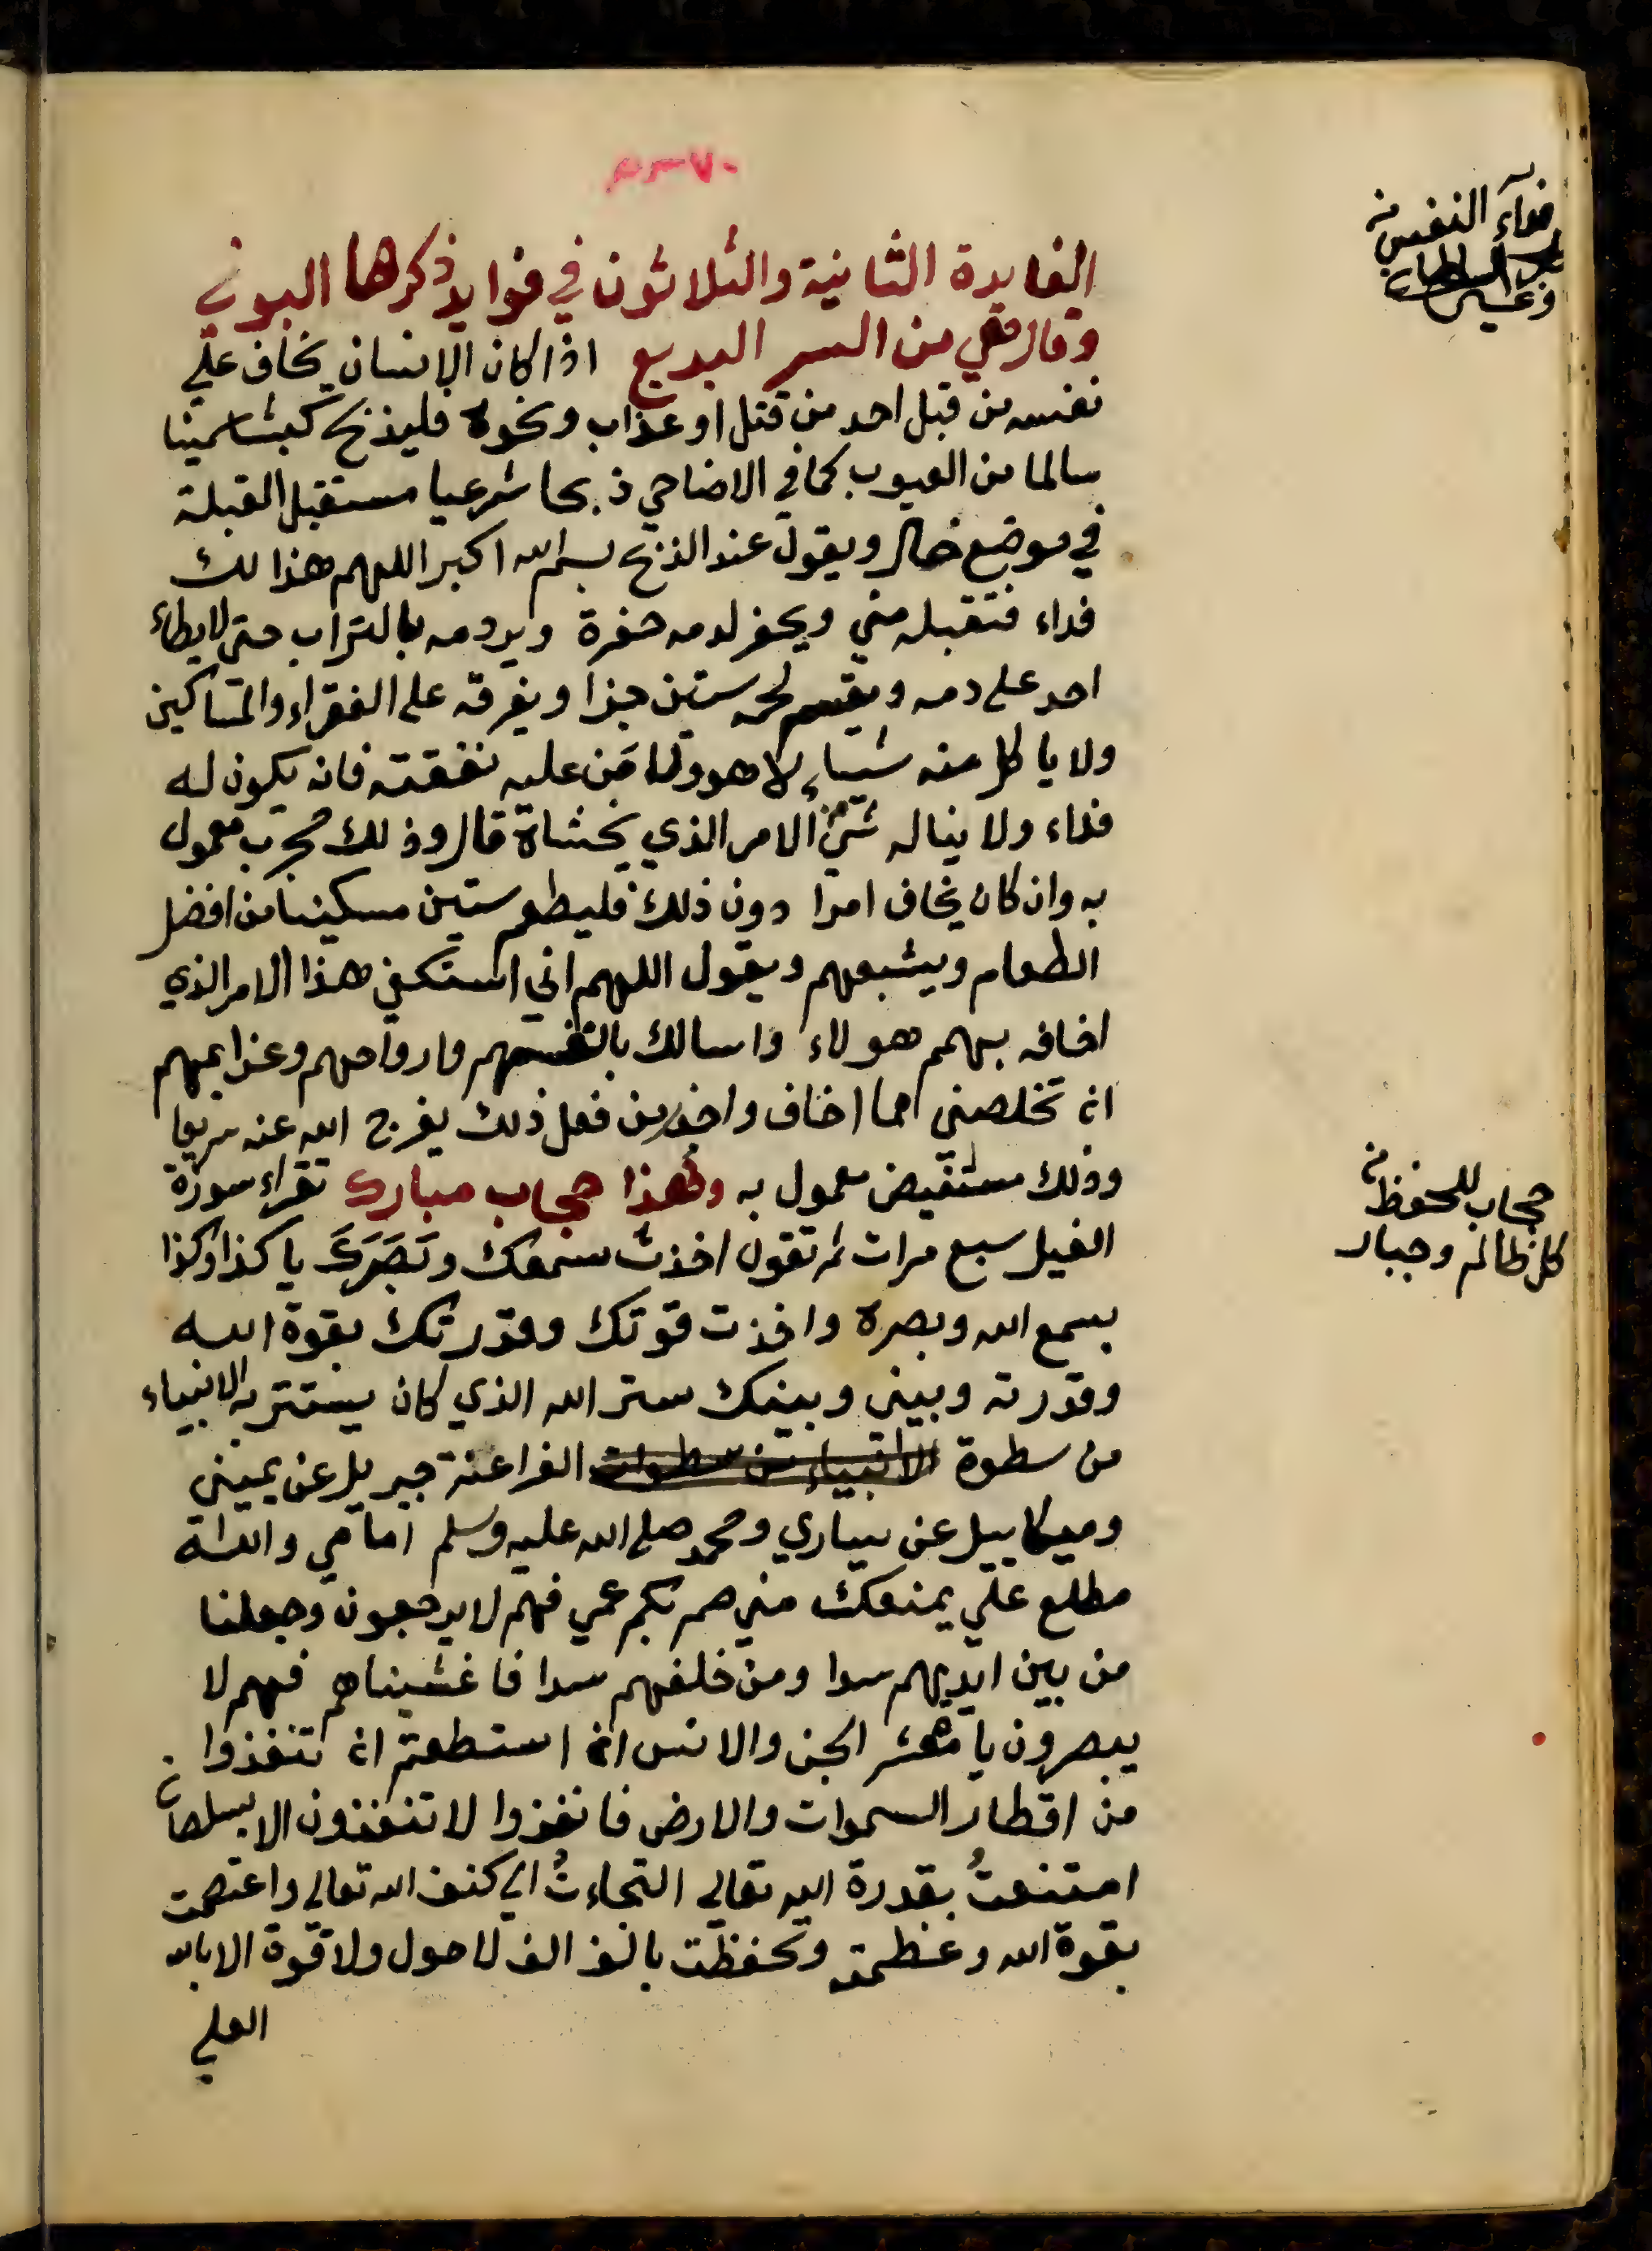 الفايدة الثانية والثلاثون في فوايد ذكرها البوني
وقال هي من السر البديع اذا كان الانسان يخاف على
نفسه من قبل احد من قتل او عذاب ونحوه فليذبح كبشا سمينا
سالما من العيوب كما في الاضاحي ذبحا شرعيا مستقبل القبلة
في موضع خال ويقول عند الذبح بسم الله اكبر اللهم هذا لك
فداء فتقبله مني ويحفر لدمه حفرة ويردمه بالتراب حتى لا يطاء
احد على دمه ويقسم لحمه ستين جزا ويفرقه على الفقراء والمساكين
ولا ياكل منه شيأ لا هو ولا من عليه نفقته فانه يكون له
فداء ولا يناله شئ من الامر الذي يخشاه قال وذلك مجرب معمول
به وان كان يخاف امرا دون ذلك فليطعم ستين مسكينا من افضل
الطعام ويشبعهم ويقول اللهم اني استكفي هذا الامر الذي
اخافه بهمم هولاء واسالك بانفسهم وارواحهم وعزايمهم
ان تخلصني مما اخاف واحذر من فعل ذلك يفرج الله عنه سريعا
وذلك مستفيض معمول به وهذا حجاب مبارك تقراء سورة
الفيل سبع مرات ثم تقول اخذت سمعك وبَصَرَكَ يا كذا وكذا
بسمع الله وبصره واخذت قوتك وقدرتك بقوة الله
وقدرته وبيني وبينك ستر الله الذي كان يستتر به الانبياء
من سطوة الانبياء من سطوات الفراعنة جبريل عن يميني
وميكاييل عن يساري ومحمد صلى الله عليه وسلم امامي والله
مطلع علي يمنعك مني صم بكم عمي فهم لا يرجعون وجعلنا
من بين ايديهم سدا ومن خلفهم سدا فاغشيناهم فهم لا
يبصرون يا معشر الجن والانس ان استطعتم ان تنفذوا
من اقطار السموات والارض فانفذوا لا تنفذون الا بسلطان
امتنعتُ بقدرة الله تعالى التجاءتُ الى كنف الله تعالى واعتصمت
بقوة الله وعظمته وتحفظت بالف الف لا حول ولا قوة الا بالله
العلي
فدآء النفس من
السلطان
وغيره
حجاب للحفظ من
كل ظالم وجبار